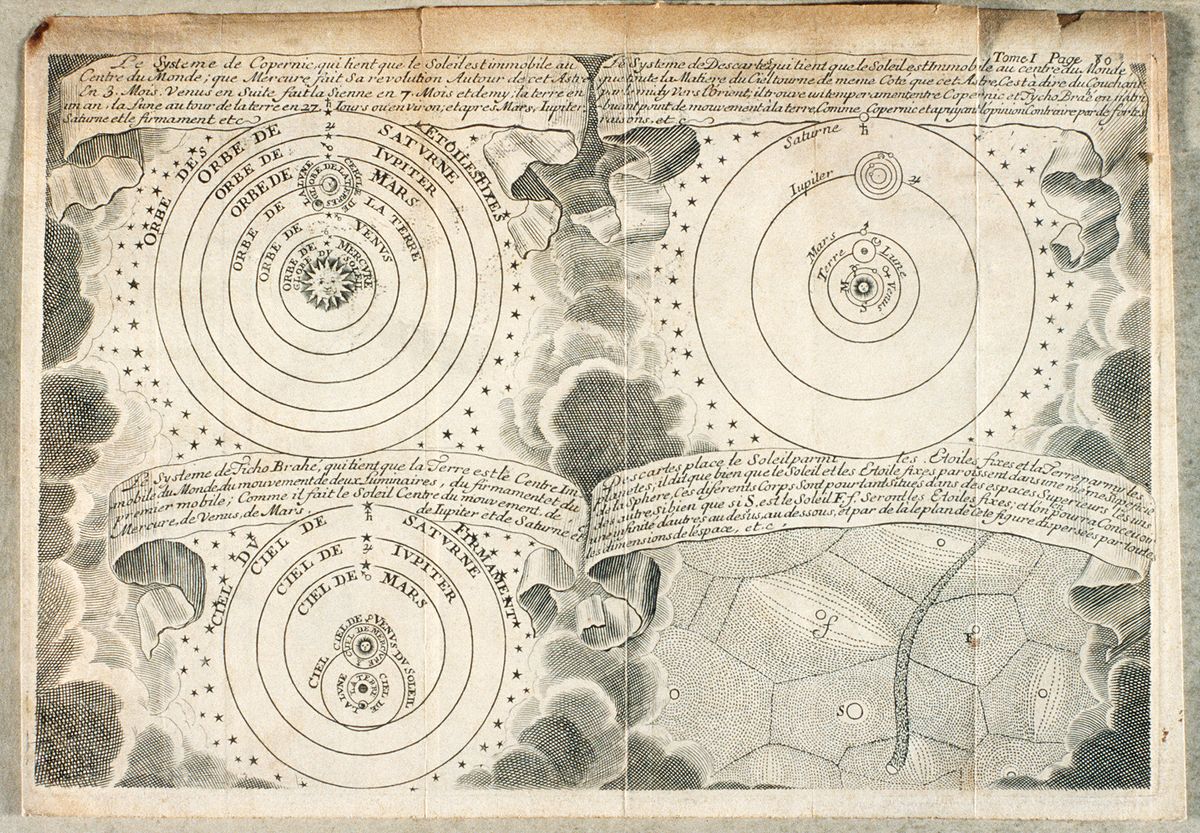 Tome I Page 80
Le Systeme de Copernic, qui tient que le Soleil est immobile au
Centre du Monde; que Mercure fait Sa revolution Autour de cet Astre
En 3. Mois. Venus en Suite fait la Sienne en 7 Mois et demy; la terre en
un an, la lune autour de la terre en 27. Jours ou environ, et apres Mars, Iupiter
Saturne et le firmament etc
ORBE DES ETOILES FIXES
ORBE DE SATVRNE
ORBE DE IVPITER
ORBE DE MARS
ORBE DE LA TERRE
CERCLE DE LA LUNE
ORBE DE VENVS
ORBE DE MERCVRE
GLOBE DU SOLEIL
Le Systeme de Descartes qui tient que le Soleil est Immobile au centre du Monde
que toute la Matiere du Ciel tourne de meme Coté que cet Astre, C'est a dire du Couchant
par le midy Vers l'Orient, il trouve un temperament entre Copernic et Tycho Brae en n'attri
buant point de mouvement à la terre, Comme Copernic et apuyant l'opinion Contraire par de fortes
raisons, et c
Saturne
Iupiter
Mars
Terre
Lune
Venus
M
S
Le Systeme de Ticho Brahe, qui tient que la Terre est le Centre Im
mobile du Monde du mouvement de deux Luminaires, du firmament et du
Premier mobile; Comme il fait le Soleil Centre du mouvement de
Mercure, de Venus, de Mars, de Iupiter et de Saturne
CIEL DV FIRMAMENT
CIEL DE SATVRNE
CIEL DE IVPITER
CIEL DE MARS
CIEL DU SOLEIL
CIEL DE VENVS
CIEL DE MERCVRE
CIEL DE LA LVNE
LA TERRE
Descartes place le Soleil parmi les Etoiles fixes et la Terre parmy les
planetes; il dit que bien que le Soleil et les Etoile fixes paroissent dans une meme superficie
de la Sphere, Ces diferents Corps sont pourtant situés dans des espaces Superieurs les uns
des autres si bien que si S. est le Soleil F, f. seront les Etoiles fixes, et l'on pourra Concevoir
une infinité d'autres au desus, au dessous, et par de la le plan de cete figure dispersées par toutes
les dimensions de l'espace, et c
f
F
S